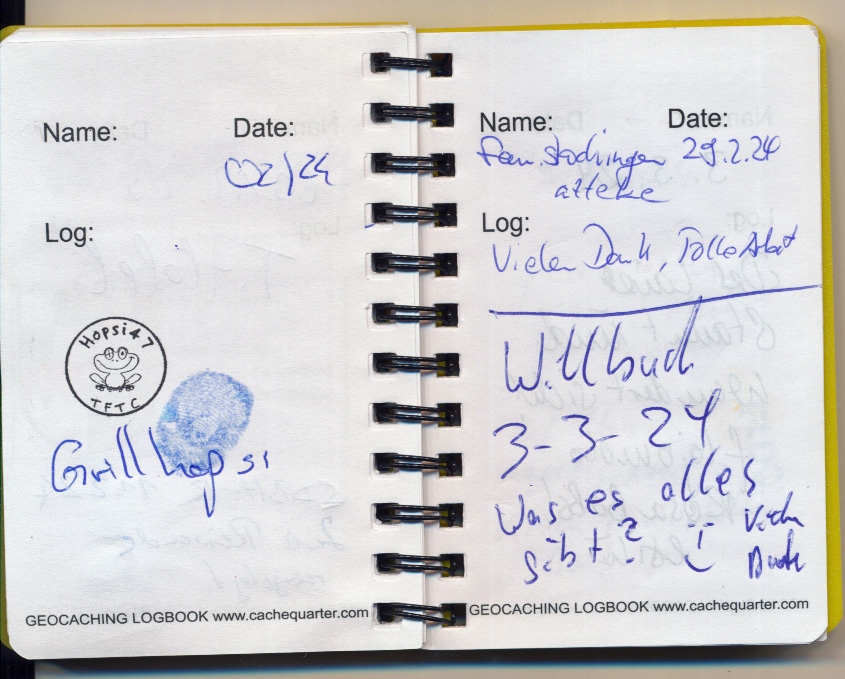 Name: Date:
02/24
Log:
Hopsi47
TFTC
Grillhopsi
GEOCACHING LOGBOOK www.cachequarter.com
Name: Date:
29.2.24
Log:
Vielen Dank, Tolle
Willbuch
3-3-24
Was es alles
gibt? Vielen
Dank
GEOCACHING LOGBOOK www.cachequarter.com